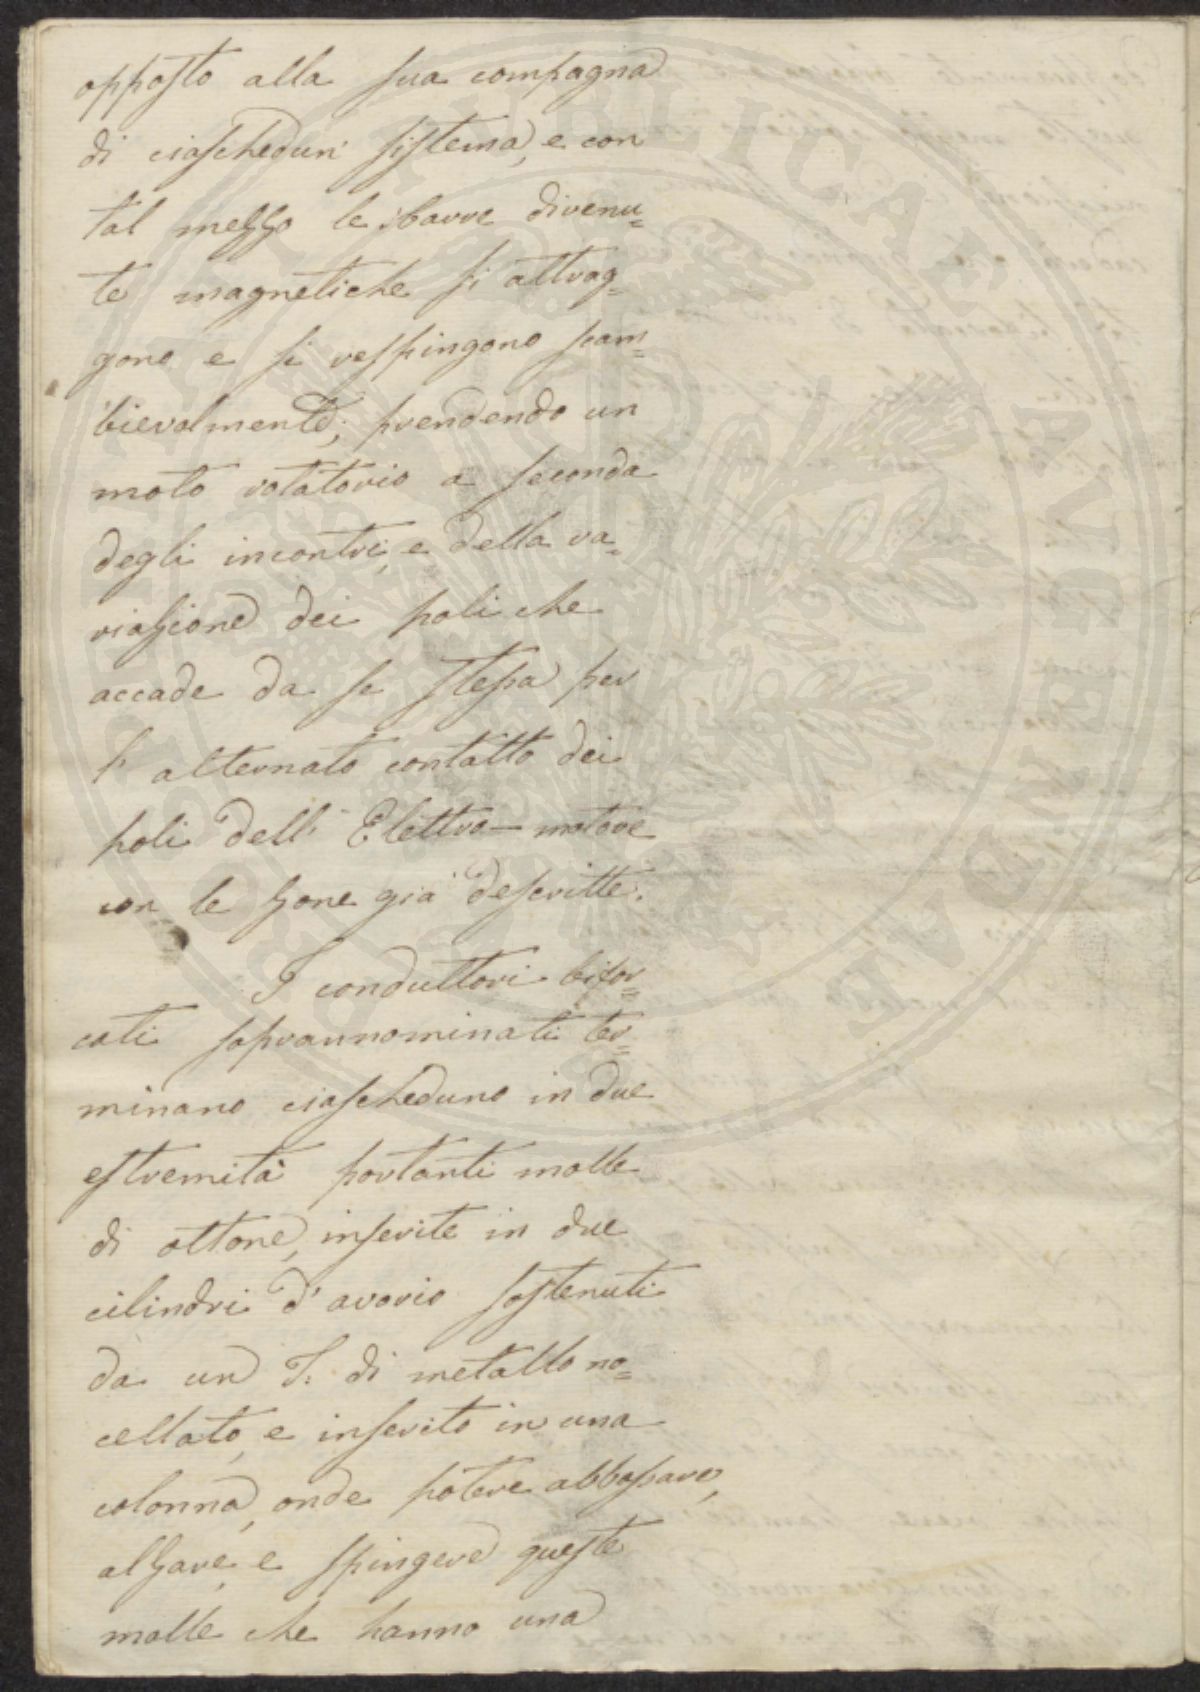 opposto alla sua compagna
di ciaschedun sistema, e con
tal mezzo le sbarre divenu=
te magnetiche si attrag=
gono e si respingono scam=
bievolmente, prendendo un
moto rotatorio a seconda
degli incontri, e della va=
riazione dei poli che
accade da se stessa per
l' alternato contatto dei
poli dell' Elettro-motore
con le zone già descritte.
I conduttori bifor=
cati soprannominati ter=
minano ciascheduno in due
estremità portanti molle
di ottone, inserite in due
cilindri d' avorio sostenuti
da un T. di metallo no=
cellato, e inserito in una
colonna, onde potere abbassare,
alzare, e spingere queste
molle che hanno una
PROSPERITATI PUBLICAE AVGENDAE